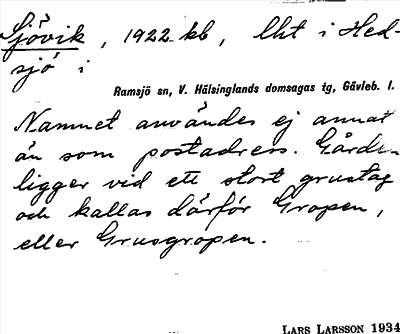 Sjövik, 1922 kb, lht i Hed-
sjö i
Ramsjö sn, V. Hälsinglands domsagas tg, Gävleb. l.
Namnet användes ej annat
än som postadress. Gården
ligger vid ett stort grustag
och kallas därför Gropen,
eller Grusgropen.
LARS LARSSON 1934